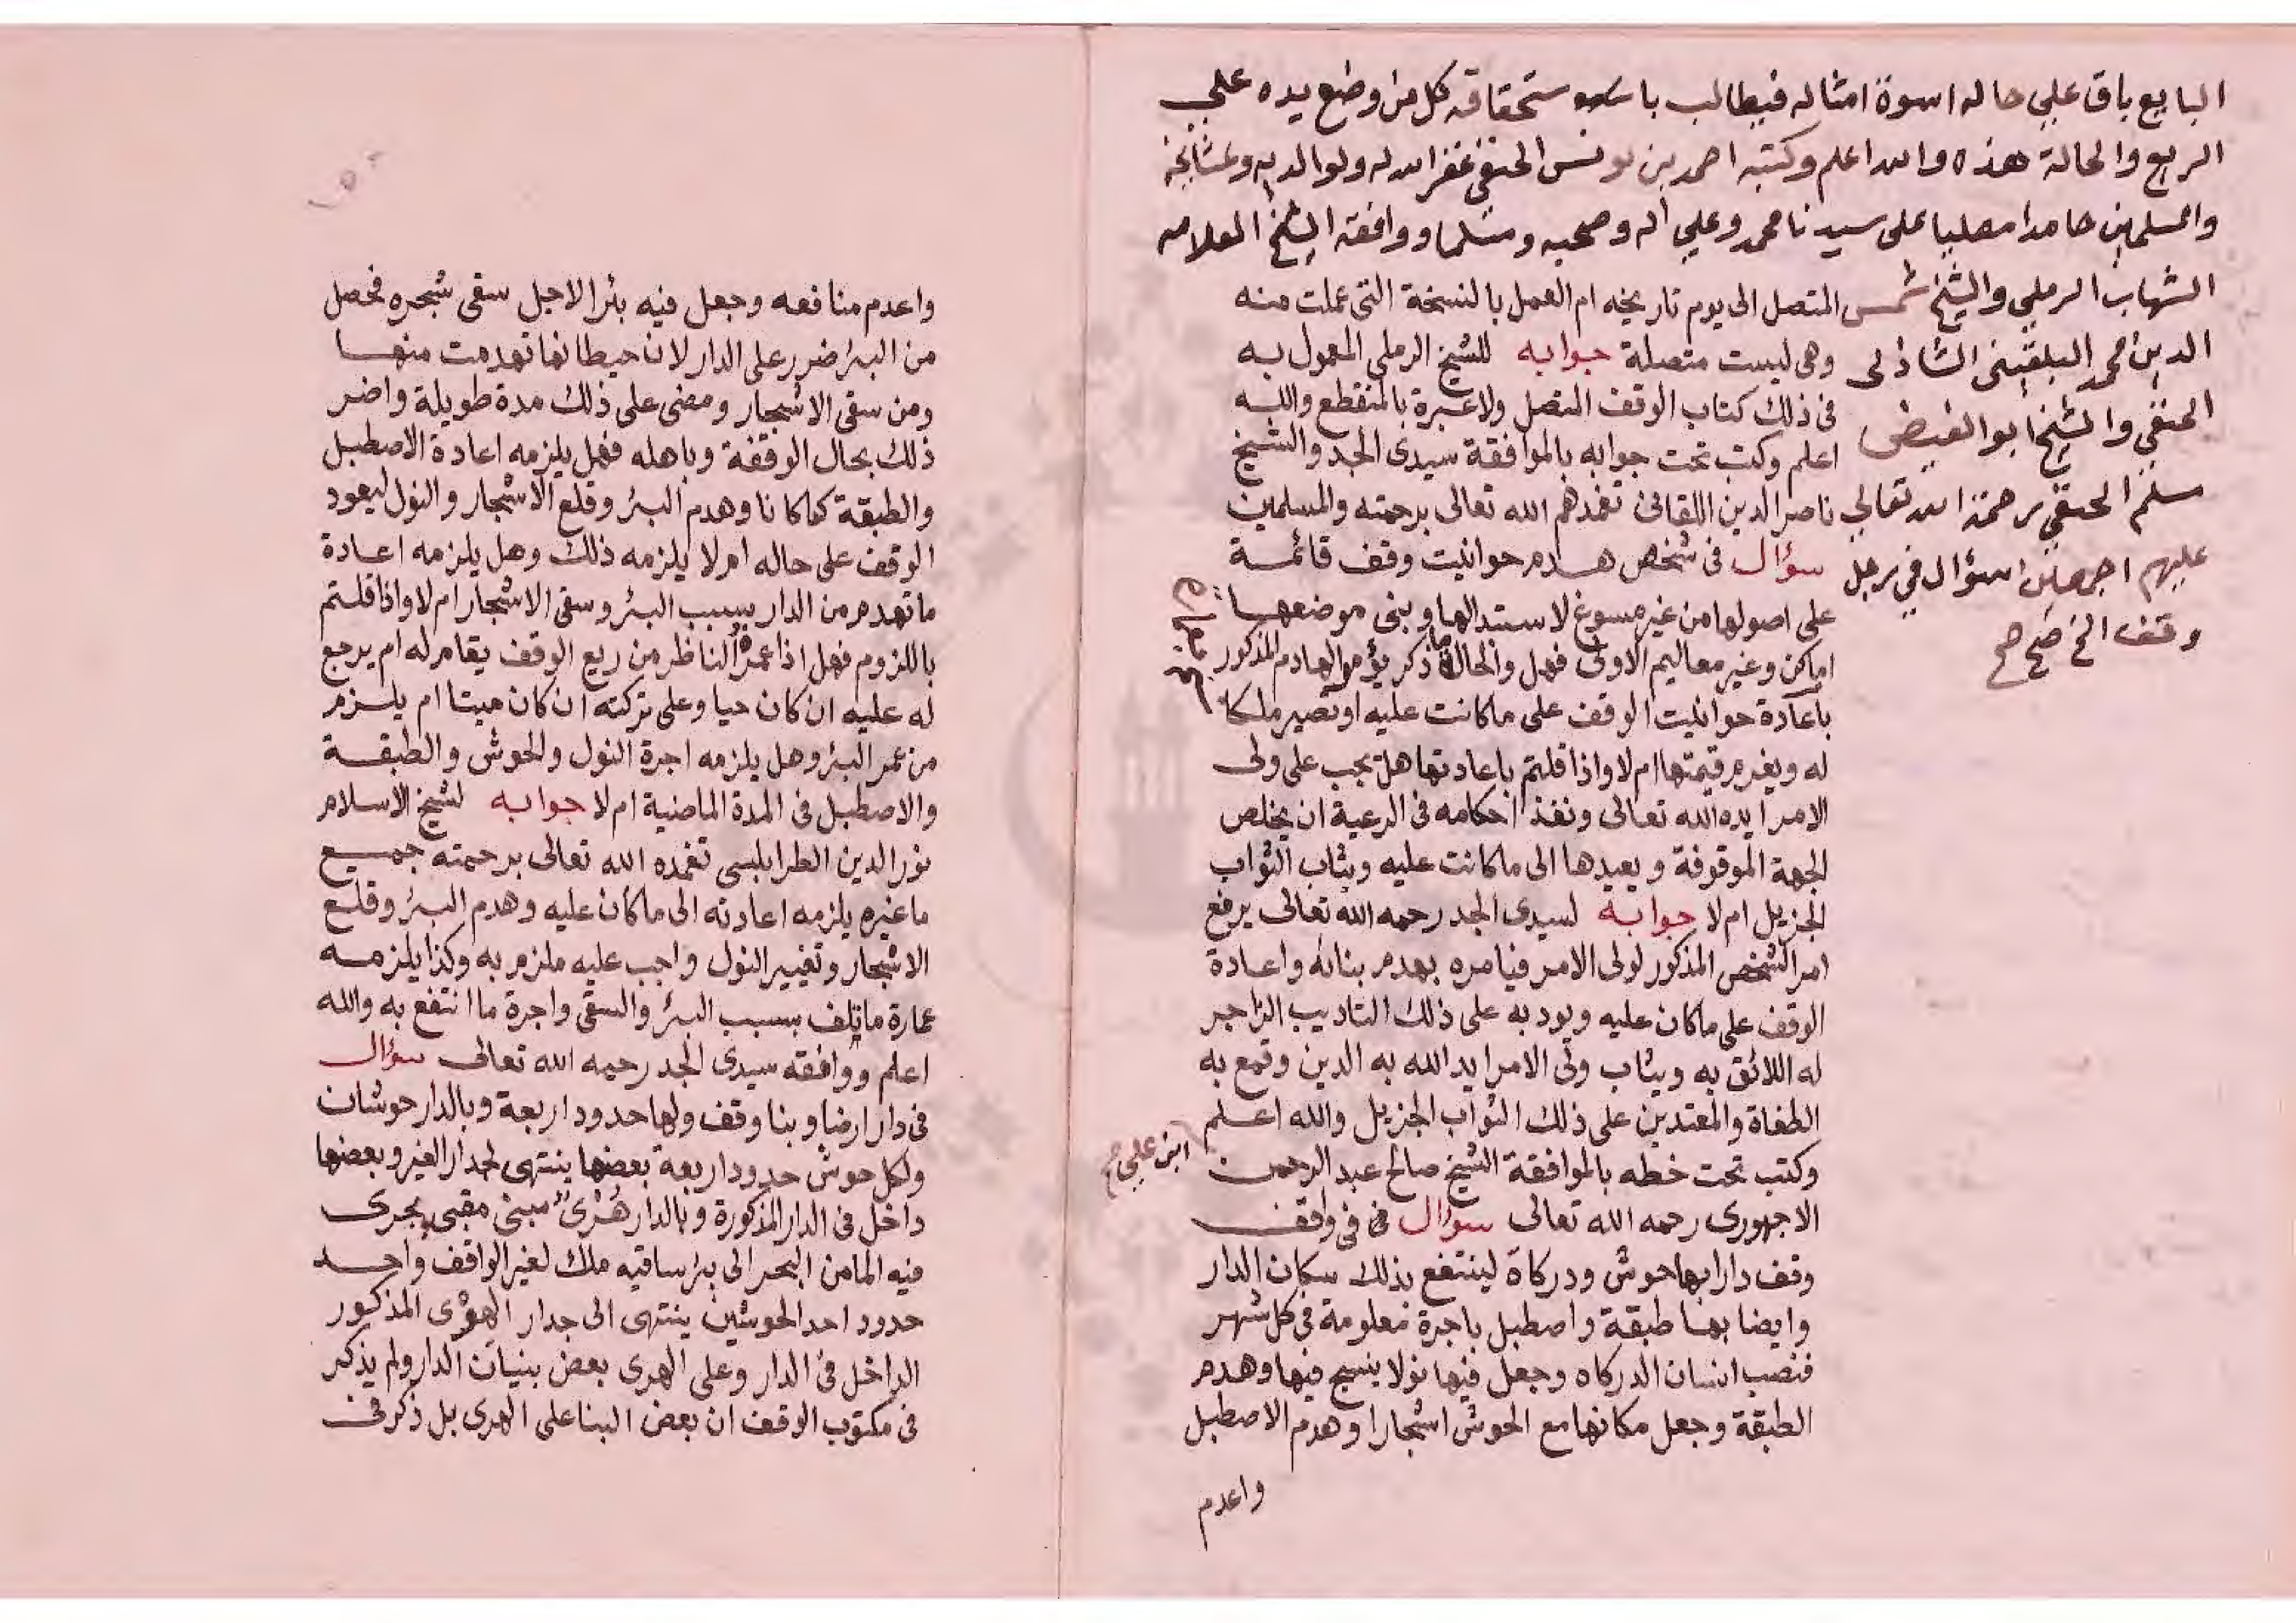 البايع باق علي حاله اسوة امثاله فيطالب باسوة ستحقاقه كل من وضع يده علي
الريع والحالة هذه والله اعلم وكتبه احمد بن يونس الحنفي غفر الله له ولوالديه ولمشايخه
والمسلمين حامدا مصليا على سيدنا محمد وعلي اله وصحبه ومسلما ووافقه الشيخ العلامه
الشهاب الرملي والشيخ شمس
الدين محمد البلقيني الشاذلى
الحنفي والشيخ ابو الفيض
سلم الحنفي رحمة الله تعالي
عليهم اجمعين سؤال في رجل
وقف الخ صح صح
المتصل الى يوم تاريخه ام العمل بالنسخة التى عملت منه
وهى ليست متصلة جوابه للشيخ الرملى المعمول به
فى ذلك كتاب الوقف المتصل ولا عبرة بالمنقطع والله
اعلم وكتب تحت جوابه بالموافقة سيدى الجد والشيخ
ناصر الدين اللقانى تغمدهم الله تعالى برحمته والمسلمين
سؤال فى شخص هدم حوانيت وقف قائمة
على اصولها من غير مسوغ لاستبدالها وبنى موضعها
اماكن وغير معاليم الاولى فهل والحال ما ذكر يؤمر الهادم المذكور
باعادة حوانيت الوقف على ما كانت عليه او تصير ملكا
له ويغرم قيمتها ام لا واذا قلتم باعادتها هل يجب على ولى
الامر ايده الله تعالى ونفذ احكامه فى الرعية ان يخلص
الجهة الموقوفة ويعيدها الى ما كانت عليه ويثاب الثواب
الجزيل ام لا جوابه لسيدى الجد رحمه الله تعالى يرفع
امر الشخص المذكور لولى الامر فيامره بهدم بنائه واعادة
الوقف على ما كان عليه ويودبه على ذلك التاديب الزاجر
له اللائق به ويثاب ولى الامر ايد الله به الدين وقمع به
الطغاة والمعتدين على ذلك الثواب الجزيل والله اعلم
وكتب تحت خطه بالموافقة الشيخ صالح عبد الرحمن
ابن علي صح
الاجهورى رحمه الله تعالى سؤال فى فى واقف
وقف دارا بها حوش ودركاة لينتفع بذلك سكان الدار
وايضا بها طبقة واصطبل باجرة معلومة فى كل شهر
فنصب انسان الدركاه وجعل فيها نولا ينسج فيها وهدم
الطبقة وجعل مكانها مع الحوش اشجارا وهدم الاصطبل
واعدم
واعدم منافعه وجعل فيه بئرا لاجل سقى شجره فحصل
من البئر ضرر على الدار لان حيطانها تهدمت منها
ومن سقى الاشجار ومضى على ذلك مدة طويلة واضر
ذلك بحال الوقفة وباهله فهل يلزمه اعادة الاصطبل
والطبقة كما كانا وهدم البئر وقلع الاشجار والنول ليعود
الوقف على حاله ام لا يلزمه ذلك وهل يلزمه اعادة
ما تهدم من الدار بسبب البئر وسقى الاشجار ام لا واذا قلتم
باللزوم فهل اذا عمره الناظر من ريع الوقف يقام له ام يرجع
له عليه ان كان حيا وعلى تركته ان كان ميتا ام يلزم
من عمر البئر وهل يلزمه اجرة النول والحوش والطبقة
والاصطبل فى المدة الماضية ام لا جوابه لشيخ الاسلام
نور الدين الطرابلسى تغمده الله تعالى برحمته جميع
ما غيره يلزمه اعادته الى ما كان عليه وهدم البئر وقلع
الاشجار وتغيير النول واجب عليه ملزم به وكذا يلزمه
عمارة ما تلف بسبب البئر والسقى واجرة ما انتفع به والله
اعلم ووافقه سيدى الجد رحمه الله تعالى سؤال
فى دار ارضا وبنا وقف ولها حدود اربعة وبالدار حوشان
ولكل حوش حدود اربعة بعضها ينتهى لجدار الغير وبعضها
داخل فى الدار المذكورة وبالدار هرى مبنى مقبى يجرى
فيه الما من البحر الى بئر ساقيه ملك لغير الواقف واحد
حدود احد الحوشين ينتهى الى جدار الهرى المذكور
الداخل فى الدار وعلى الهرى بعض بنيان الدار ولم يذكر
فى مكتوب الوقف ان بعض البنا على الهرى بل ذكر فى